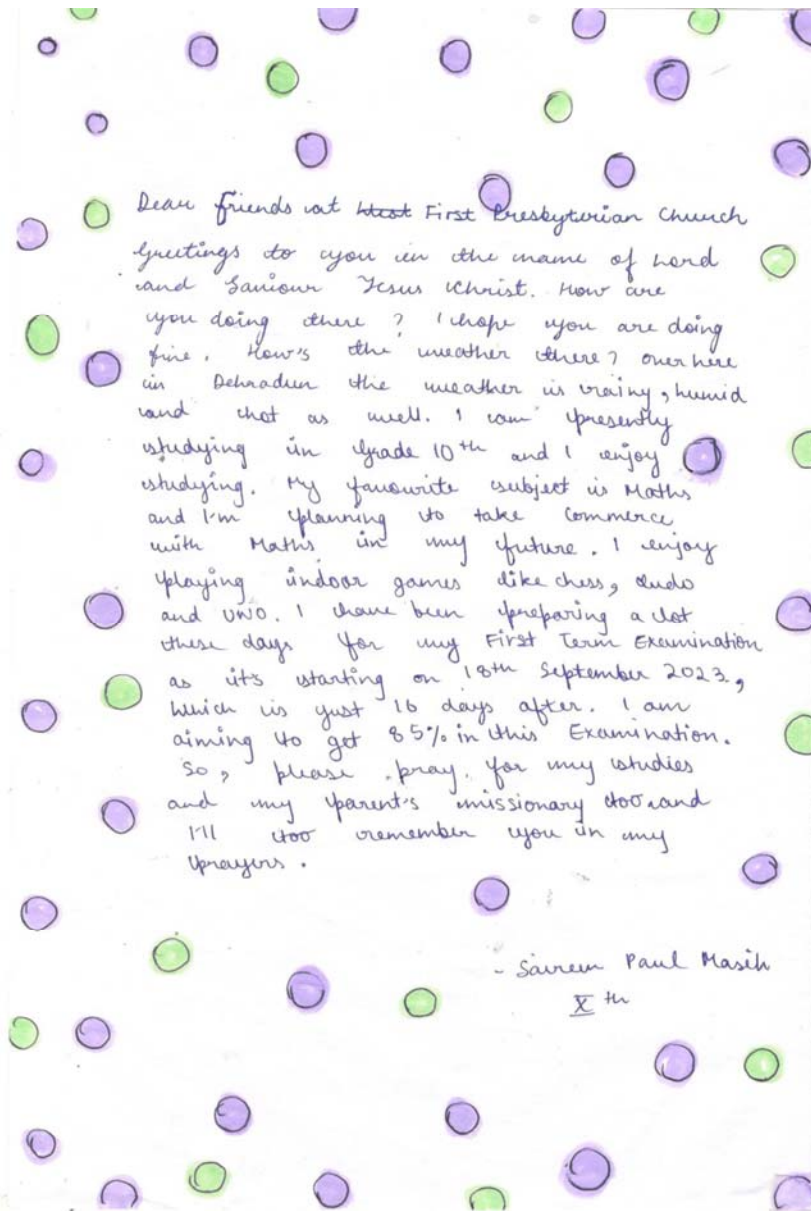 Dear friends at First Presbyterian Church
Greetings to you in the name of Lord
and Saviour Jesus Christ. How are
you doing there ? I hope you are doing
fine. How's the weather there? over here
in Dehradun the weather is rainy, humid
and hot as well. I am presently
studying in Grade 10th and I enjoy
studying. My favourite subject is Maths
and I'm planning to take Commerce
with Maths in my future. I enjoy
playing indoor games like chess, ludo
and UNO. I have been preparing a lot
these days for my First Term Examination
as it's starting on 18th September 2023,
which is just 16 days after. I am
aiming to get 85% in this Examination.
So, please pray for my studies
and my parent's missionary too and
I'll too remember you in my
prayers.
- Paul Masih
Xth